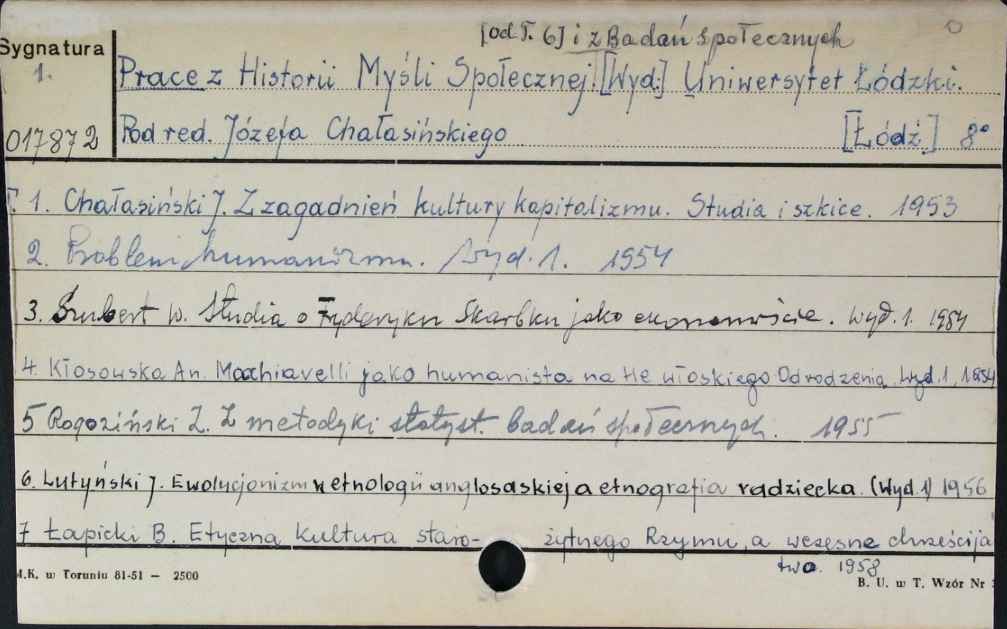 [od T. 6] i z Badań społecznych
Sygnatura
1.
Prace z Historii Myśli Społecznej. [Wyd.] Uniwersytet Łódzki.
017872
Pod red. Józefa Chałasińskiego [Łódź] 8°
T. 1. Chałasiński J. Z zagadnień kultury kapitalizmu. Studia i szkice. 1953
2. Problemy humanizmu. Wyd. 1. 1954
3. Szubert W. Studia o Fryderyku Skarbku jako ekonomiście. Wyd. 1. 1954
4. Kłosowska An. Machiavelli jako humanista na tle włoskiego Odrodzenia. Wyd. 1, 1954
5 Rogoziński Z. Z metodyki statyst. badań społecznych. 1955
6. Lutyński J. Ewolucjonizm w etnologii anglosaskiej a etnografia radziecka. (Wyd. 1) 1956
7 Łapicki B. Etyczna kultura staro- żytnego Rzymu, a wczesne chrześcija
two. 1958
M.K. w Toruniu 81-51 — 2500
B. U. w T. Wzór Nr